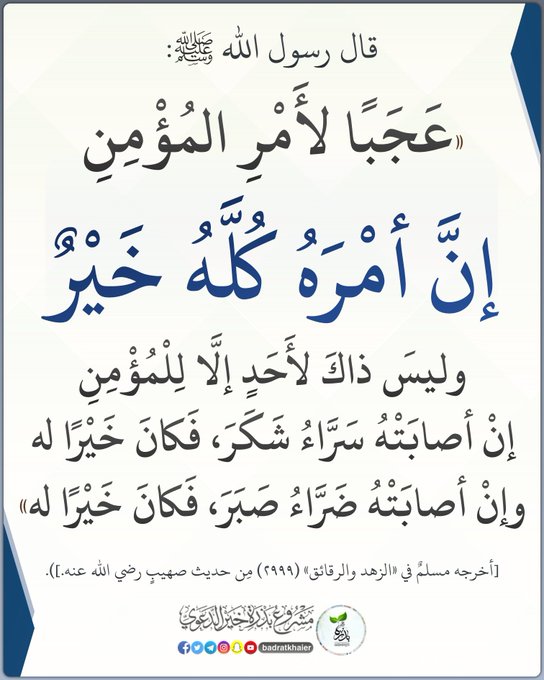 قال رسول الله ﷺ:
«عَجَبًا لأَمْرِ المُؤْمِنِ
إنَّ أمْرَهُ كُلَّهُ خَيْرٌ
وليسَ ذاكَ لأَحَدٍ إلَّا لِلْمُؤْمِنِ
إنْ أصابَتْهُ سَرَّاءُ شَكَرَ، فَكانَ خَيْرًا له
وإنْ أصابَتْهُ ضَرَّاءُ صَبَرَ، فَكانَ خَيْرًا له»
[أخرجه مسلمٌ في «الزهد والرقائق» (٢٩٩٩) مِن حديث صهيبٍ رضي الله عنه.]).
مشروع بذرة خير الدعوي
badratkhaier